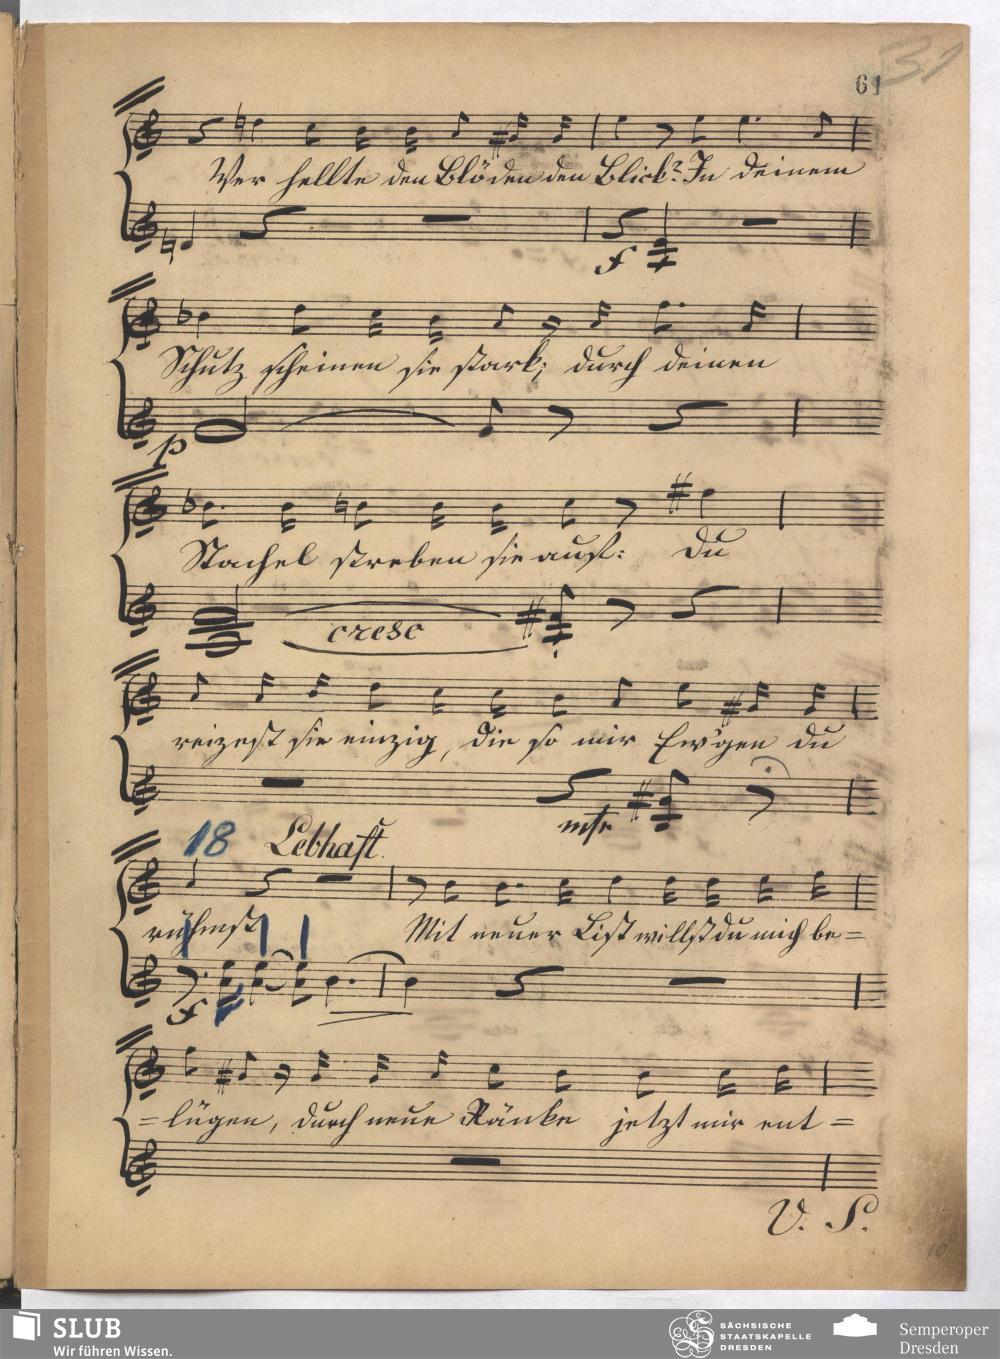 61
31
Wer hellte den Blöden den Blick? In deinem
f
Schutz scheinen sie stark; durch deinen
p
Stachel streben sie auf: Du
cresc
reizest sie einzig, die so mir Ew'gen du
18 Lebhaft.
rühmst
Mit neuer List willst du mich be=
f
=lügen, durch neue Ränke jetzt mir ent=
V. S.
10
SLUB
Wir führen Wissen.
SÄCHSISCHE
STAATSKAPELLE
DRESDEN
Semperoper
Dresden